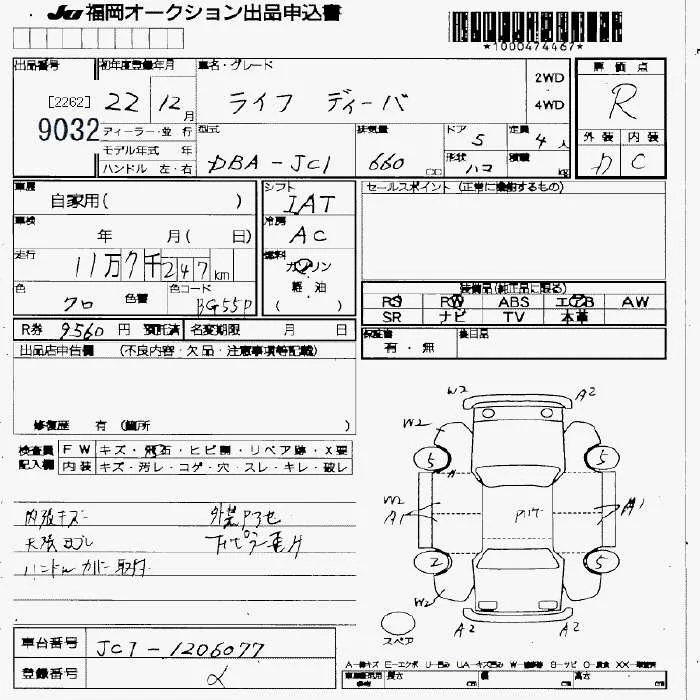 JU 福岡オークション出品申込書
*1000474467*
出品番号 初年度登録年月 車名・グレード 2WD 評価点
[2262] 22 12月 ライフ ディーバ 4WD R
9032 ディーラー・並行 型式 排気量 ドア 5 定員 4人 外装 内装
モデル年式 年 DBA-JC1 660 cc 形状 ハコ 積載 kg C
ハンドル 左・右
車歴 シフト セールスポイント
自家用( ) IAT
車検 冷房
年 月( 日) AC
走行 燃料
11万7千247km ガソリン
色 色替 色コード 軽・油
クロ BG55P ( )
装備品(純正品に限る)
PS PW ABS エアB AW
SR ナビ TV 本革
R券 9560円 預託済 名変期限 月 日
保証書 有・無 後日品
出品店申告欄 (不良内容・欠品・注意事項等記載)
修復歴 有 (箇所 )
検査員 FW キズ・飛石・ヒビ割・リペア跡・X要
記入欄 内装 キズ・汚レ・コゲ・穴・スレ・キレ・破レ
内張キズ
ハンドルカバー取付
W2 A2
W2
5 5
W2
A1 A1
2 5
W2
A2 A2
スペア
車台番号 JC1-1206077
登録番号